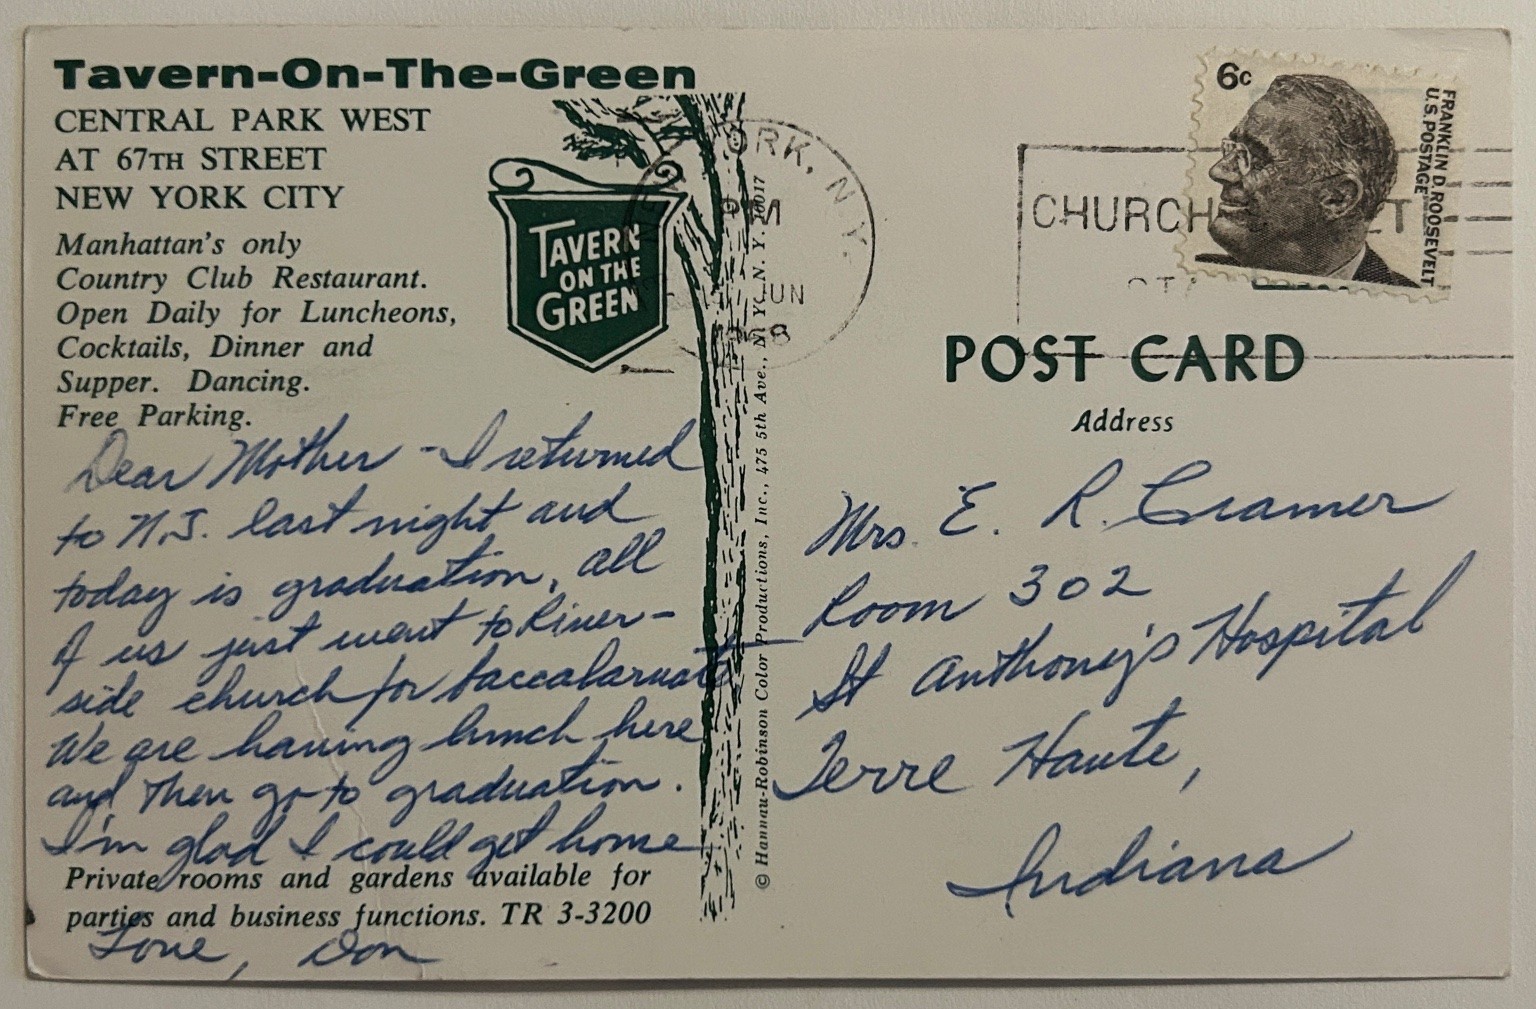 Tavern-On-The-Green
CENTRAL PARK WEST
AT 67TH STREET
NEW YORK CITY
Manhattan's only
Country Club Restaurant.
Open Daily for Luncheons,
Cocktails, Dinner and
Supper. Dancing.
Free Parking.
TAVERN
ON THE
GREEN
Dear Mother - I returned
to N.J. last night and
today is graduation, all
of us just went to River-
side church for baccalaureate
We are having lunch here
and then go to graduation.
I'm glad I could get home
Private rooms and gardens available for
parties and business functions. TR 3-3200
Love, Don
© Hannau-Robinson Color Productions, Inc., 475 5th Ave., N. Y., N. Y. 10017
NEW YORK, N.Y.
PM
JUN
1968
CHURCH
6c
FRANKLIN D. ROOSEVELT
U.S. POSTAGE
POST CARD
Address
Mrs. E. R. Cramer
Room 302
St Anthony's Hospital
Terre Haute,
Indiana